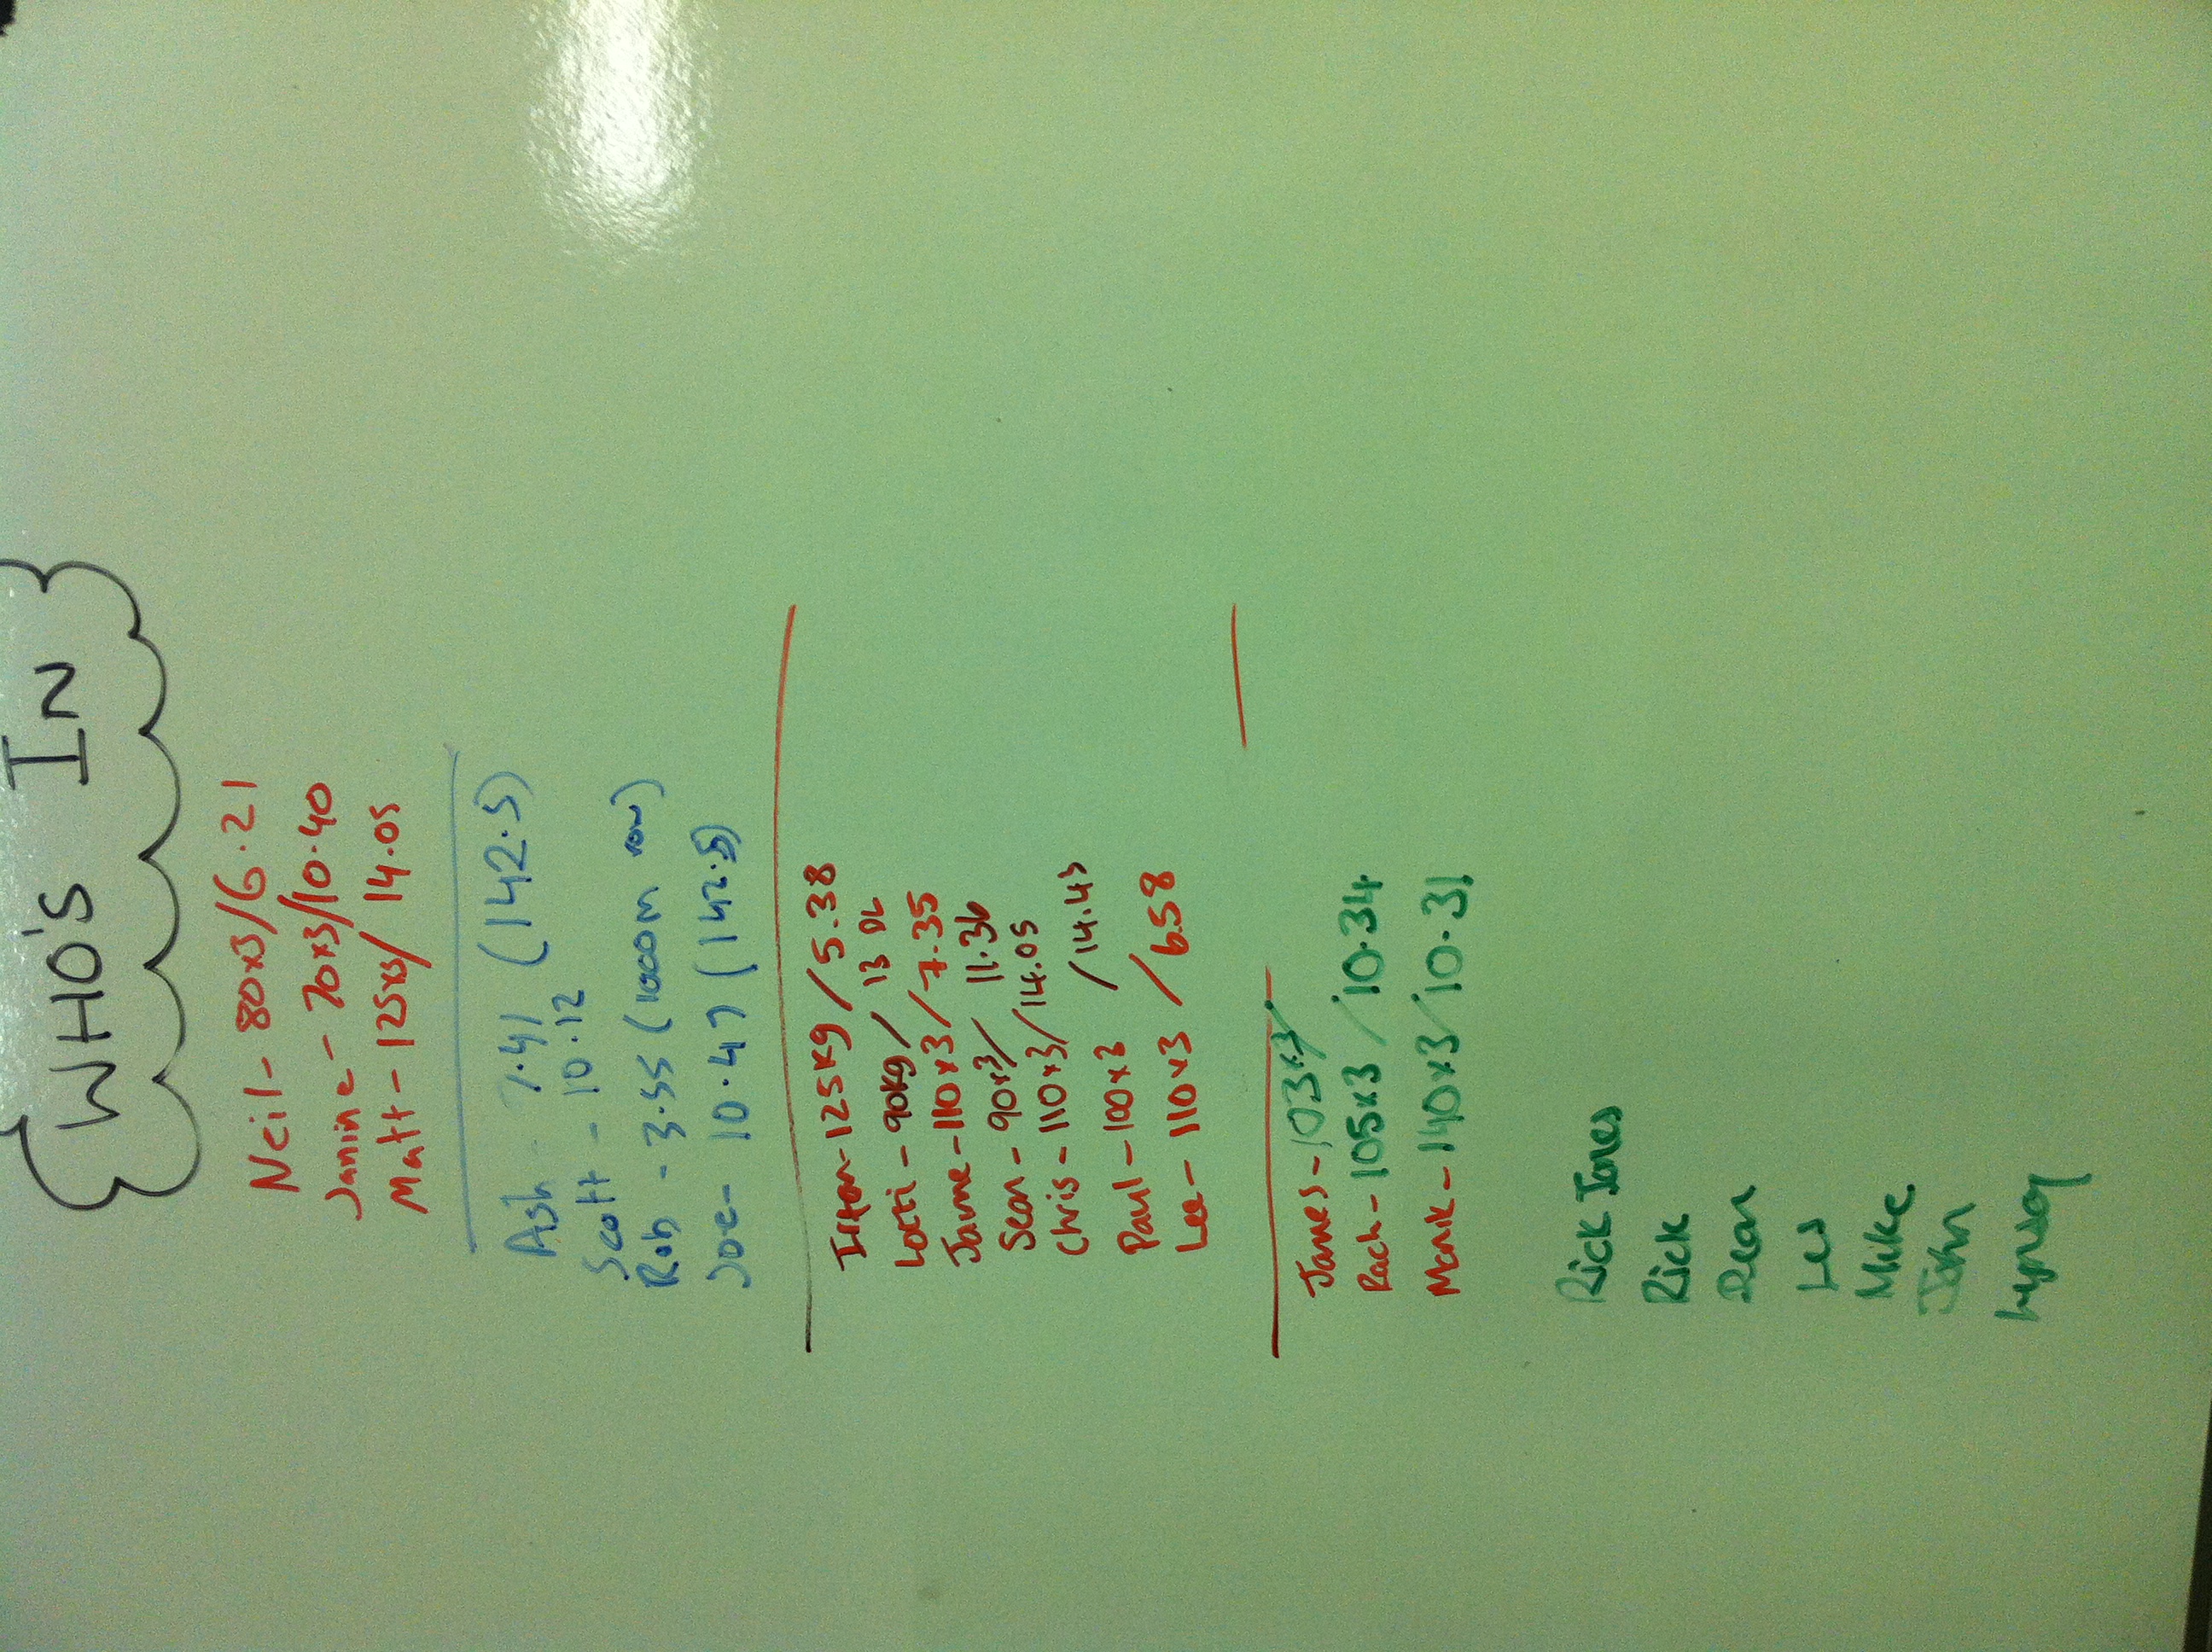 WHO'S IN
Neil - 80x3/6.21
Janine - 70x3/10.40
Matt - 125x3/ 14.05
Ash - 7.41 (142.5)
Scott - 10.12
Rob - 3.55 (1000m row)
Joe - 10.47 (142.5)
125kg/5.38
Lotti - 90kg/ 13 DL
Jamie - 110x3/7.35
Sean - 90x3/ 11.36
Chris - 110x3/14.05
Paul - 100x3 /14.43
Lee - 110x3 /6.58
James - 103x3/
Rach - 105x3 /10.34
Mark - 140x3/10.31
Rick Jones
Rick
Dean
Les
Mike
John